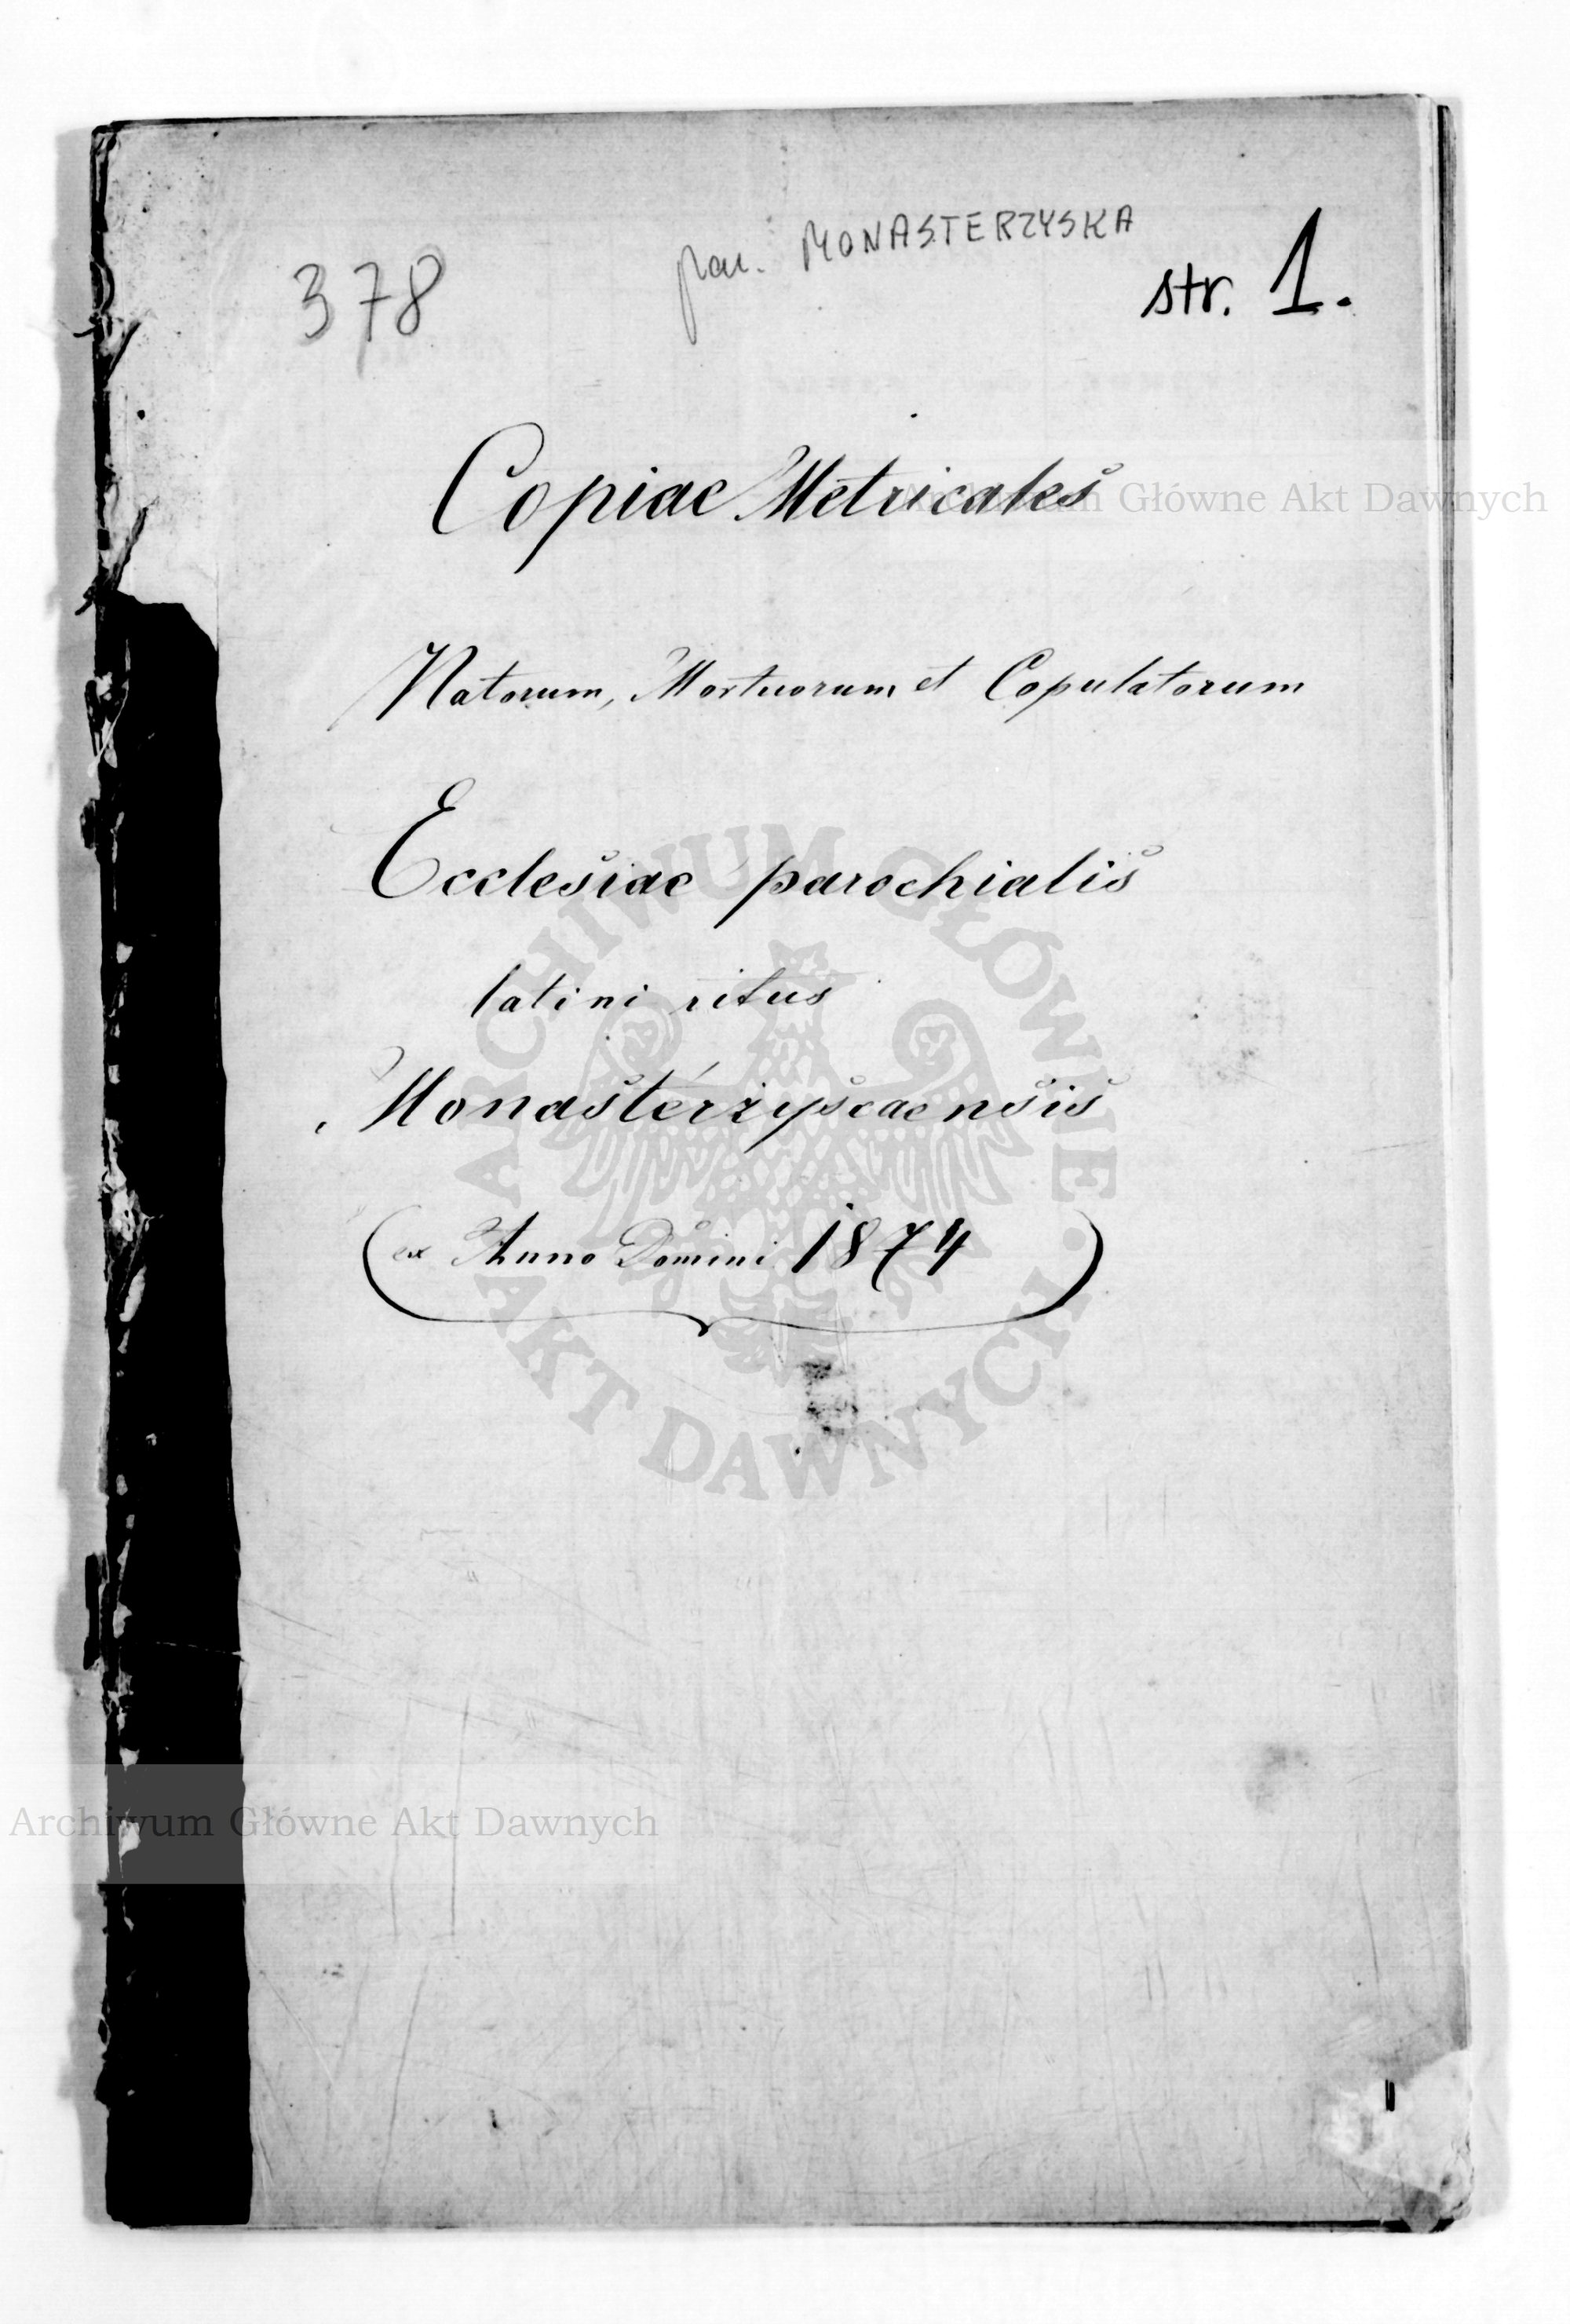 378
par. MONASTERZYSKA
str. 1.
Copiae Metricales
Archiwum Główne Akt Dawnych
Natorum, Mortuorum et Copulatorum
Ecclesiae parochialis
latini ritus
Monasterzyscaensis
(ex Anno Domini 1874)
ARCHIWUM GŁÓWNE • AKT DAWNYCH
Archiwum Główne Akt Dawnych